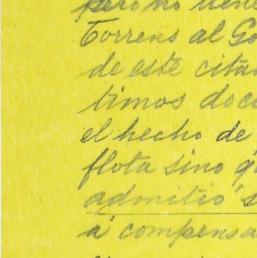 pero no tiene
Torrens al Go
de este cita
timos doc
el hecho de
flota sino q
admitió s
á compensa